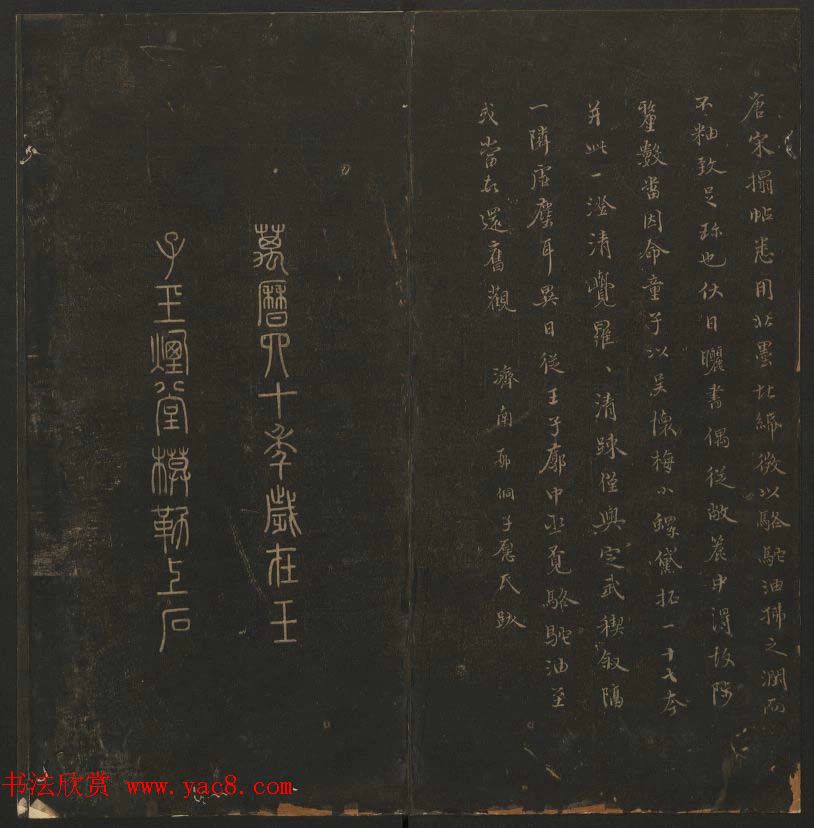 唐宋搨帖悉用北墨北緜微以駱駝油拂之潤而
不釉致足珎也伏日曬書偶從敝簏中得故
蠒數番因命童子以吳懷梅小螺黛拓一十七本
并此一澄清覺羅、清疎僅與定武禊叙隔
一隣虛塵耳異日從王子廓中丞覓駱駝油至
或當大還舊觀 濟南邢侗子愿父跋
萬曆四十年歲在壬
子玉煙堂橅勒上石
书法欣赏 www.yac8.com